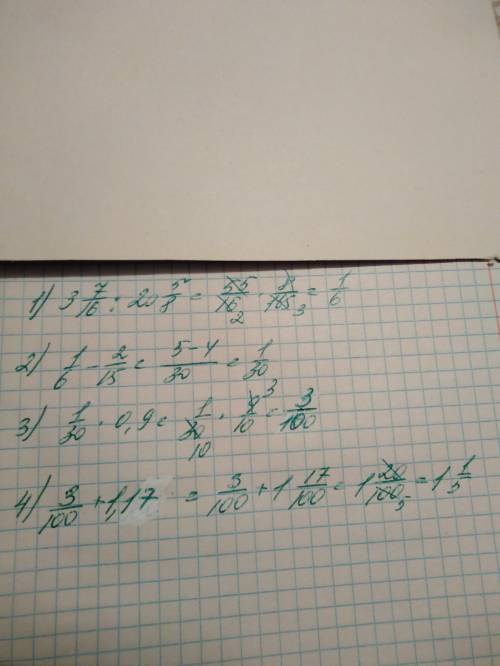 1) 3 7/16 : 20 5/8 = 55/16 2 · 8/165 3 = 1/6
2) 1/6 - 2/15 = 5-4/30 = 1/30
3) 1/30 · 0,9 = 1/30 10 · 9/10 3 = 3/100
4) 3/100 + 1,17 = 3/100 + 1 17/100 = 1 20/100 5 = 1 1/5